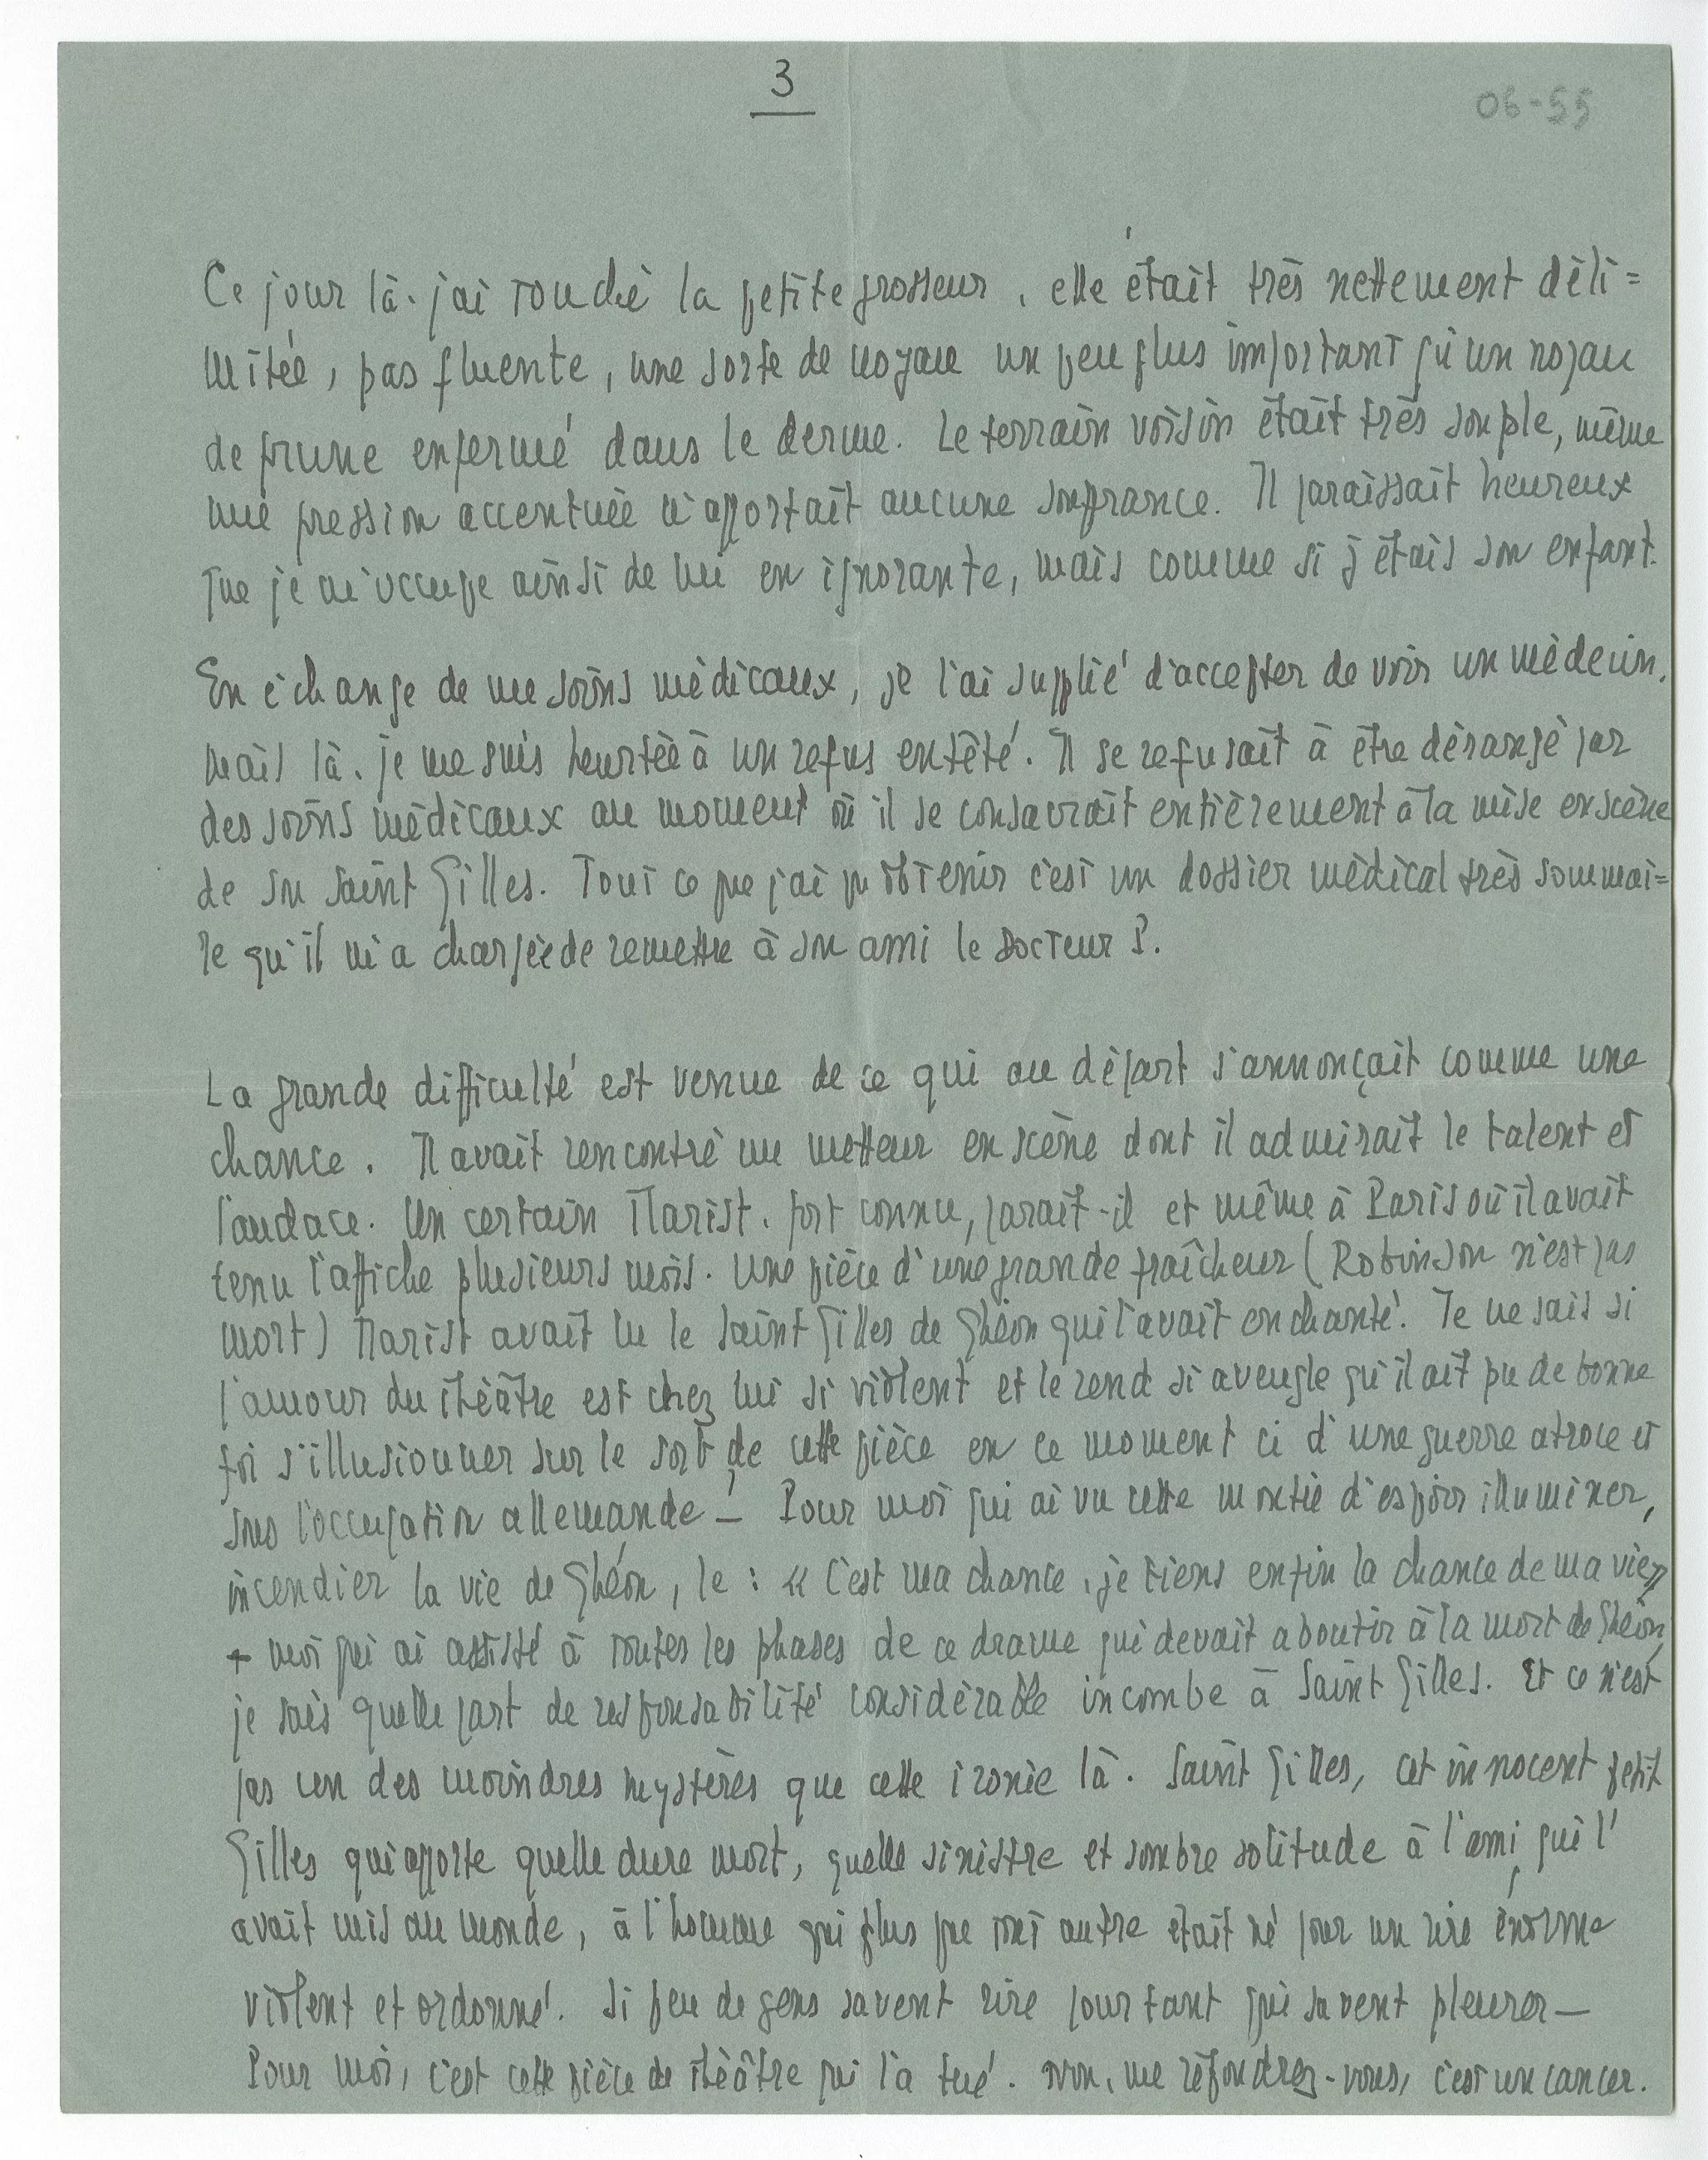 3
06-55
Ce jour là. j'ai touché la petite grosseur, elle était très nettement déli=
mitée, pas fluente, une sorte de noyau un peu plus important qu'un noyau
de prune enfermé dans le derme. Le terrain voisin était très souple, même
une pression accentuée n'apportait aucune souffrance. Il paraissait heureux
que je m'occupe ainsi de lui en ignorante, mais comme si j'étais son enfant.
En échange de me soins médicaux, je l'ai supplié d'accepter de voir un médecin,
mais là. je me suis heurtée à un refus entêté. Il se refusait à être dérangé par
des soins médicaux au moment où il se consacrait entièrement à la mise en scène
de son Saint Gilles. Tout ce que j'ai pu obtenir c'est un dossier médical très sommai=
re qu'il m'a chargée de remettre à son ami le docteur P.
La grande difficulté est venue de ce qui au départ s'annonçait comme une
chance. Il avait rencontré un metteur en scène dont il admirait le talent et
l'audace. Un certain Marist. fort connu, paraît-il et même à Paris où il avait
tenu l'affiche plusieurs mois. Une pièce d'une grande fraîcheur (Robinson n'est pas
mort) Marist avait lu le Saint Gilles de Ghéon qui l'avait enchanté. Je ne sais si
l'amour du théâtre est chez lui si violent et le rend si aveugle qu'il ait pu de bonne
foi s'illusionner sur le sort de cette pièce en ce moment ci d'une guerre atroce et
sous l'occupation allemande! — Pour moi qui ai vu cette montée d'espoir illuminer,
incendier la vie de Ghéon, le : « C'est ma chance, je tiens enfin la chance de ma vie »
+ moi qui ai assisté à toutes les phases de ce drame qui devait aboutir à la mort de Ghéon,
je sais quelle part de responsabilité considérable incombe à Saint Gilles. Et ce n'est
pas un des moindres mystères que cette ironie là. Saint Gilles, cet innocent petit
Gilles qui apporte quelle dure mort, quelle sinistre et sombre solitude à l'ami qui l'
avait mis au monde, à l'homme qui plus que tout autre était né pour un rire énorme
violent et ordonné. Si peu de gens savent rire pour tant qui savent pleurer —
Pour moi, c'est cette pièce de théâtre qui l'a tué. Non, me répondrez-vous, c'est un cancer.